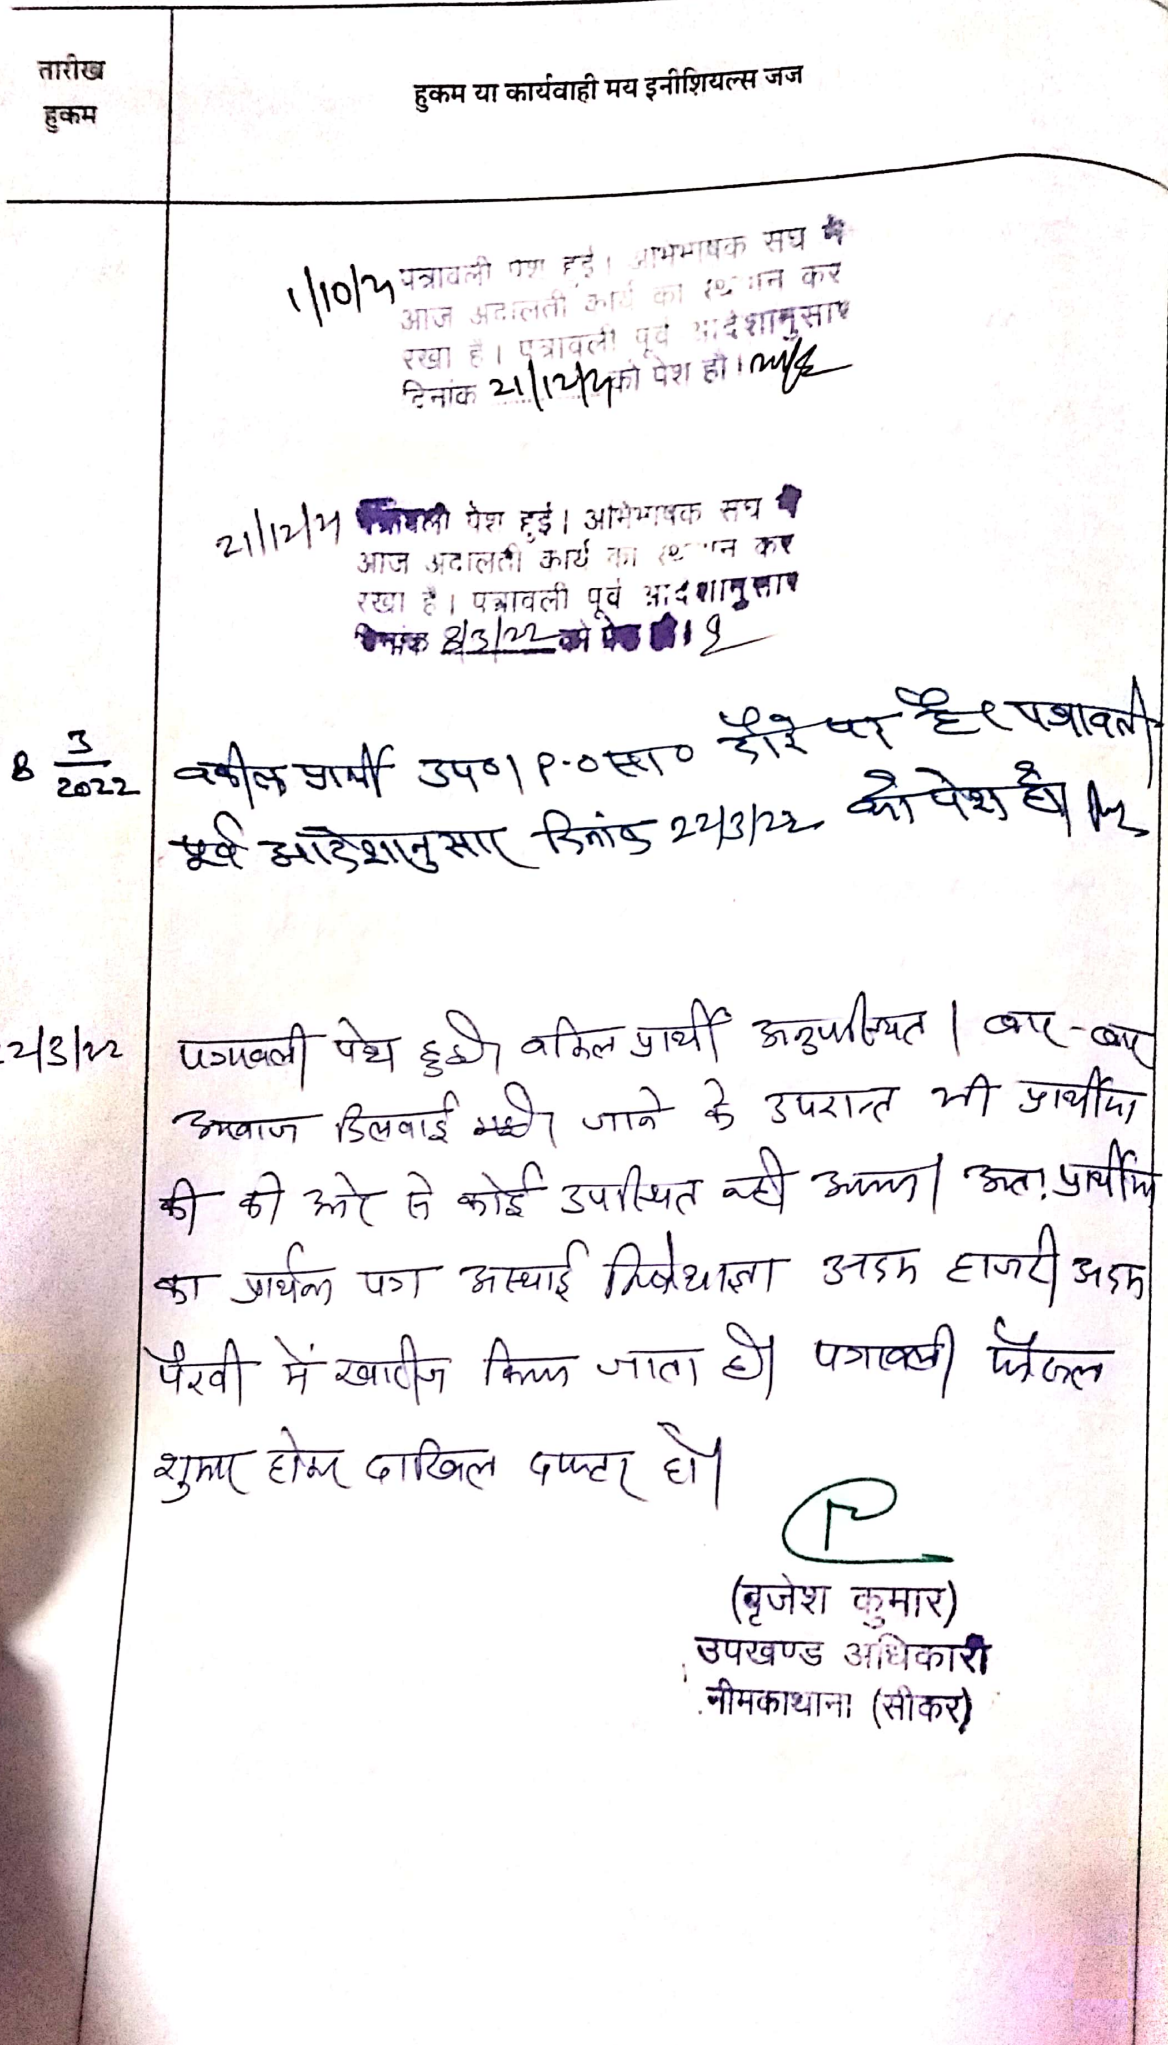 तारीख
हुकम
हुकम या कार्यवाही मय इनीशियल्स जज
1/10/21 पत्रावली पेश हुई। अभिभाषक संघ ने
आज अदालती कार्य का स्थगन कर
रखा है। पत्रावली पूर्व आदेशानुसार
दिनांक 21/12/21 को पेश हो।
21/12/21 पत्रावली पेश हुई। अभिभाषक संघ ने
आज अदालती कार्य का स्थगन कर
रखा है। पत्रावली पूर्व आदेशानुसार
दिनांक 8/3/22 को पेश हो।
8 3/2022 वकील प्रार्थी उप०। P.O सा० दौरे पर है। पत्रावली
पूर्व आदेशानुसार दिनांक 22/3/22 को पेश हो।
22/3/22 पत्रावली पेश हुई। वकिल प्रार्थी अनुपस्थित। बार-बार
आवाज दिलवाई जाने के उपरान्त भी प्रार्थीया
की की ओर से कोई उपस्थित नही आया। अतः प्रार्थीया
का प्रार्थना पत्र अस्थाई निषेधाज्ञा अदम हाजरी अदम
पैरवी में खारीज किया जाता है। पत्रावली फैसल
शुमार होकर दाखिल दफ्तर हो।
(बृजेश कुमार)
उपखण्ड अधिकारी
नीमकाथाना (सीकर)